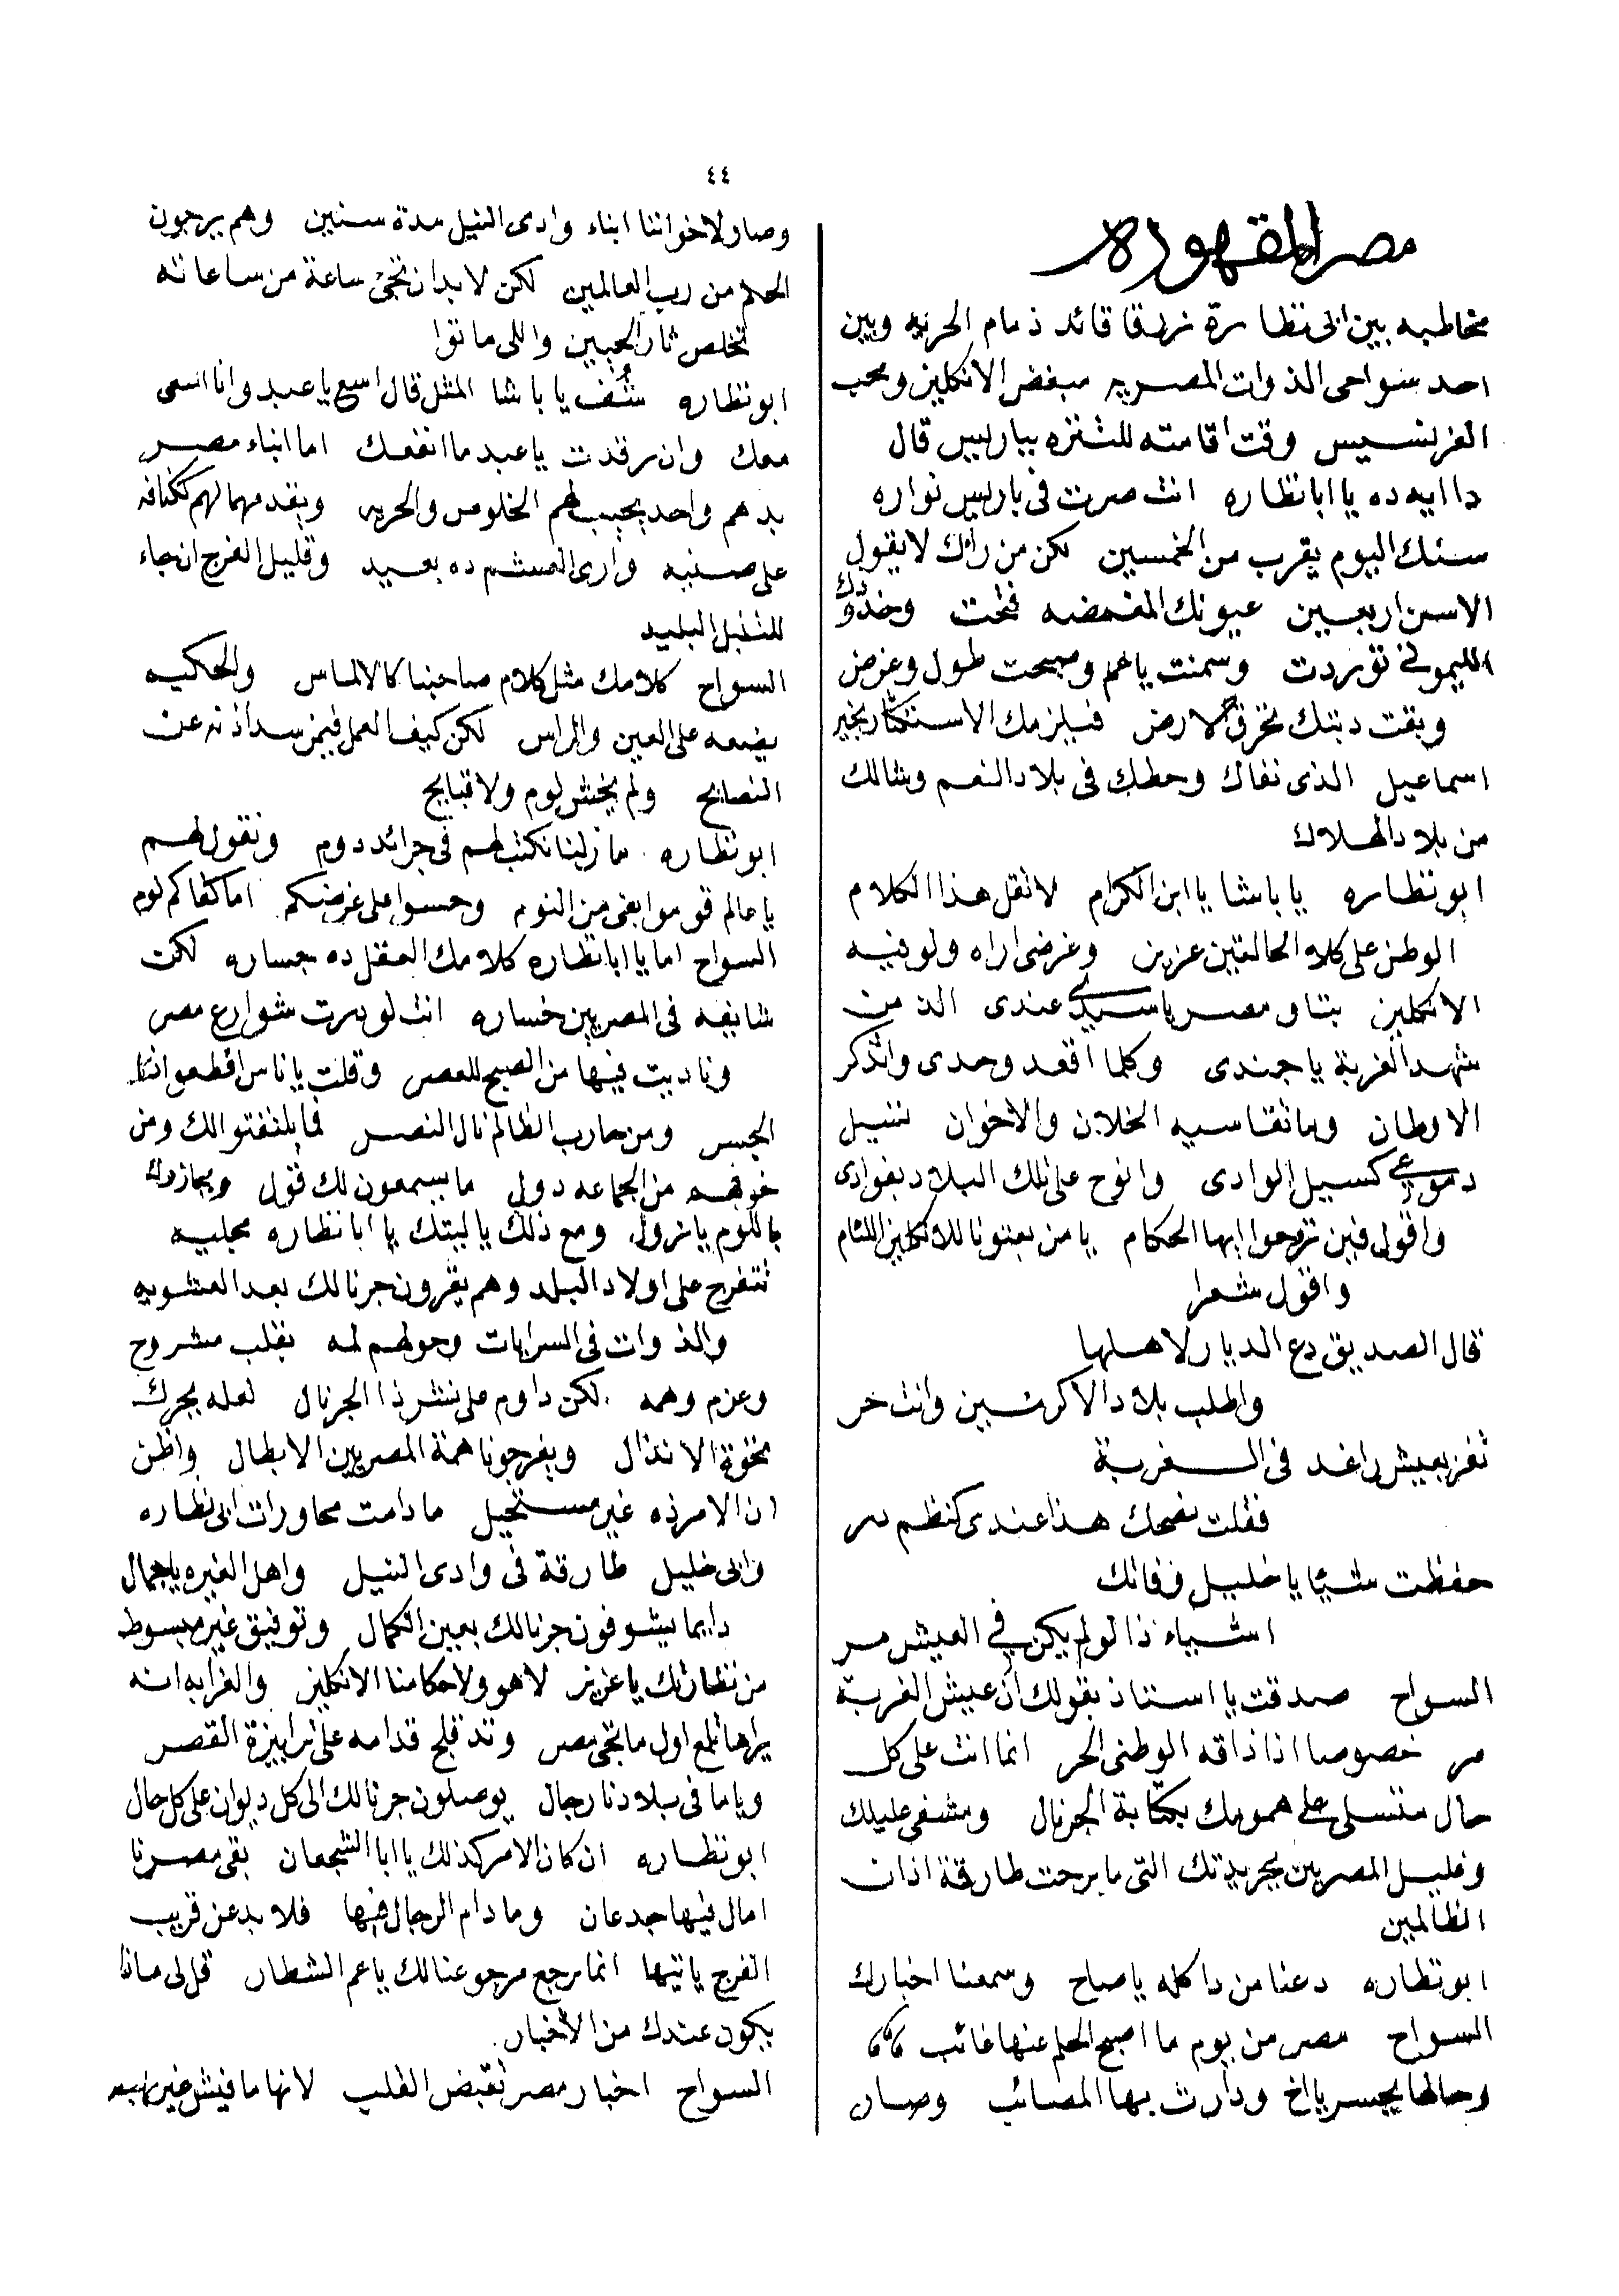 ٤٤
مصر المقهورة
مخاطبه بين ابى نظارة زرقا قائد زمام الحريه وبين
احد سواحى الذوات المصريه مبغض الانكليز ومحب
الفرنسيس وقت اقامته للتنزه بباريس قال
دا ايه ده يا ابا نظاره انت صرت فى باريس نواره
سنك اليوم يقرب من الخمسين لكن من رآك لا يقول
الا سن اربعين عيونك المغمضه فتحت وخدودك
الليمونى توردت وسمنت ياعم وصبحت طول وعرض
وبقت دبتك تخرق الارض فيلزمك الاستكثار بخير
اسماعيل الذى نفاك وحطك فى بلاد النعم وشالك
من بلاد الهلاك
ابو نظاره يا باشا يا ابن الكرام لا تقل هذا الكلام
الوطن على كلا الحالتين عزيز وغرضى اراه ولو فيه
الانكليز بتاو مصر يا سيدى عندى الذ من
شهد الغربة يا جندى وكلما اقعد وحدى واتذكر
الاوطان وما تقاسيه الخلان والاخوان تسيل
دموعى كسيل الوادى وانوح على تلك البلاد بفوادى
واقول فين تروحوا ايها الحكام يا من بعتونا للانكليز اللئام
واقول شعرا
قال الصديق دع الديار لاهلها
واطلب بلاد الاكرمين وانت حر
تفز بعيش راغد فى الغربة
فقلت نصحك هذا عندى كنظم در
حفظت شيئا يا خليل وفاتك
اشياء ذا لو لم يكن فى العيش مر
السواح صدقت يا استاذ بقولك ان عيش الغربة
مر خصوصا اذا ذاقه الوطنى الحر انما انت على كل
حال متسلى على همومك بكتابة الجرنال ومشفى عليلك
وغليل المصريين بجريدتك التى ما برحت طارقة اذان
الظالمين
ابو نظاره دعنا من دا كله يا صاح وسمعنا اخبارك
السواح مصر من يوم ما اصبح الحلم عنها غائب
وحالها يحسر يا اخ ودارت بها المصائب وصار
وصار لاخواننا ابناء وادى النيل مدة سنين وهم يرجون
الحلم من رب العالمين لكن لابد ان تجئ ساعة من ساعاته
تخلص ثار الحيين واللى ماتوا
ابو نظاره شُف يا باشا المثل قال اسع يا عبد وانا اسعى
معك وان رقدت يا عبد ما انفعك اما ابناء مصر
بدهم واحد يجيب لهم الخلوص والحريه ويقدمها لهم ككنافه
على صنيه وارى العشم ده بعيد وقليل الفرج ان جاء
للتنبل البليد
السواح كلامك مثل كلام صاحبنا كالالماس والحكيم
يضعه على العين والراس لكن كيف العمل فيمن سد اذنه عن
النصايح ولم يخش لوم ولا قبايح
ابو نظاره ما زلنا نكتب لهم فى جرائد دوم ونقول لهم
يا عالم قوموا بقى من النوم وحسوا على عرضكم اما كفاكم لوم
السواح اما يا ابا نظاره كلامك العقل ده جساره لكن
شايفه فى المصريين خساره انت لو درت شوارع مصر
وناديت فيها من الصبح للعصر وقلت يا ناس اقطعوا
الجسر ومن حارب الظالم نال النصر فما يلتفتوا لك ومن
خوفهم من الجماعه دول ما يسمعون لك قول ويجازوك
باللوم يا زول ومع ذلك يا ليتك يا ابا نظاره
تتفرج على اولاد البلد وهم يقرون جرنالك بعد العشويه
والذوات فى السرايات وحولهم لمه بقلب مشروح
وعزم وهمه لكن داوم على نشر ذا الجرنال لعله يحرك
نخوة الانذال ويفرجونا همة المصريين الابطال واظن
ان الامر ذه غير مستحيل ما دامت محاورات ابى نظاره
وابى خليل طارقة فى وادى النيل واهل الغيره يا جمال
دايما يشوفون جرنالك بعين الكمال وتوفيق غير مبسوط
من نظارتك يا عزيز لا هو ولا حكامنا الانكليز والغرابه انه
يراها تلمع اول ما تجى مصر وتدقلج قدامه على ترابيزة القصر
وياما فى بلادنا رجال يوصلون جرنالك الى كل ديوان على كل حال
ابو نظاره ان كان الامر كذلك يا ابا الشجعان بقى مصرنا
امال فيها جدعان وما دام الرجال فيها فلا بد عن قريب
الفرج ياتيها انما مرجع مرجوعنا لك يا عم الشطار قل لى ماذا
يكون عندك من الاخبار
السواح اخبار مصر تقبض القلب لانها ما فيش غير